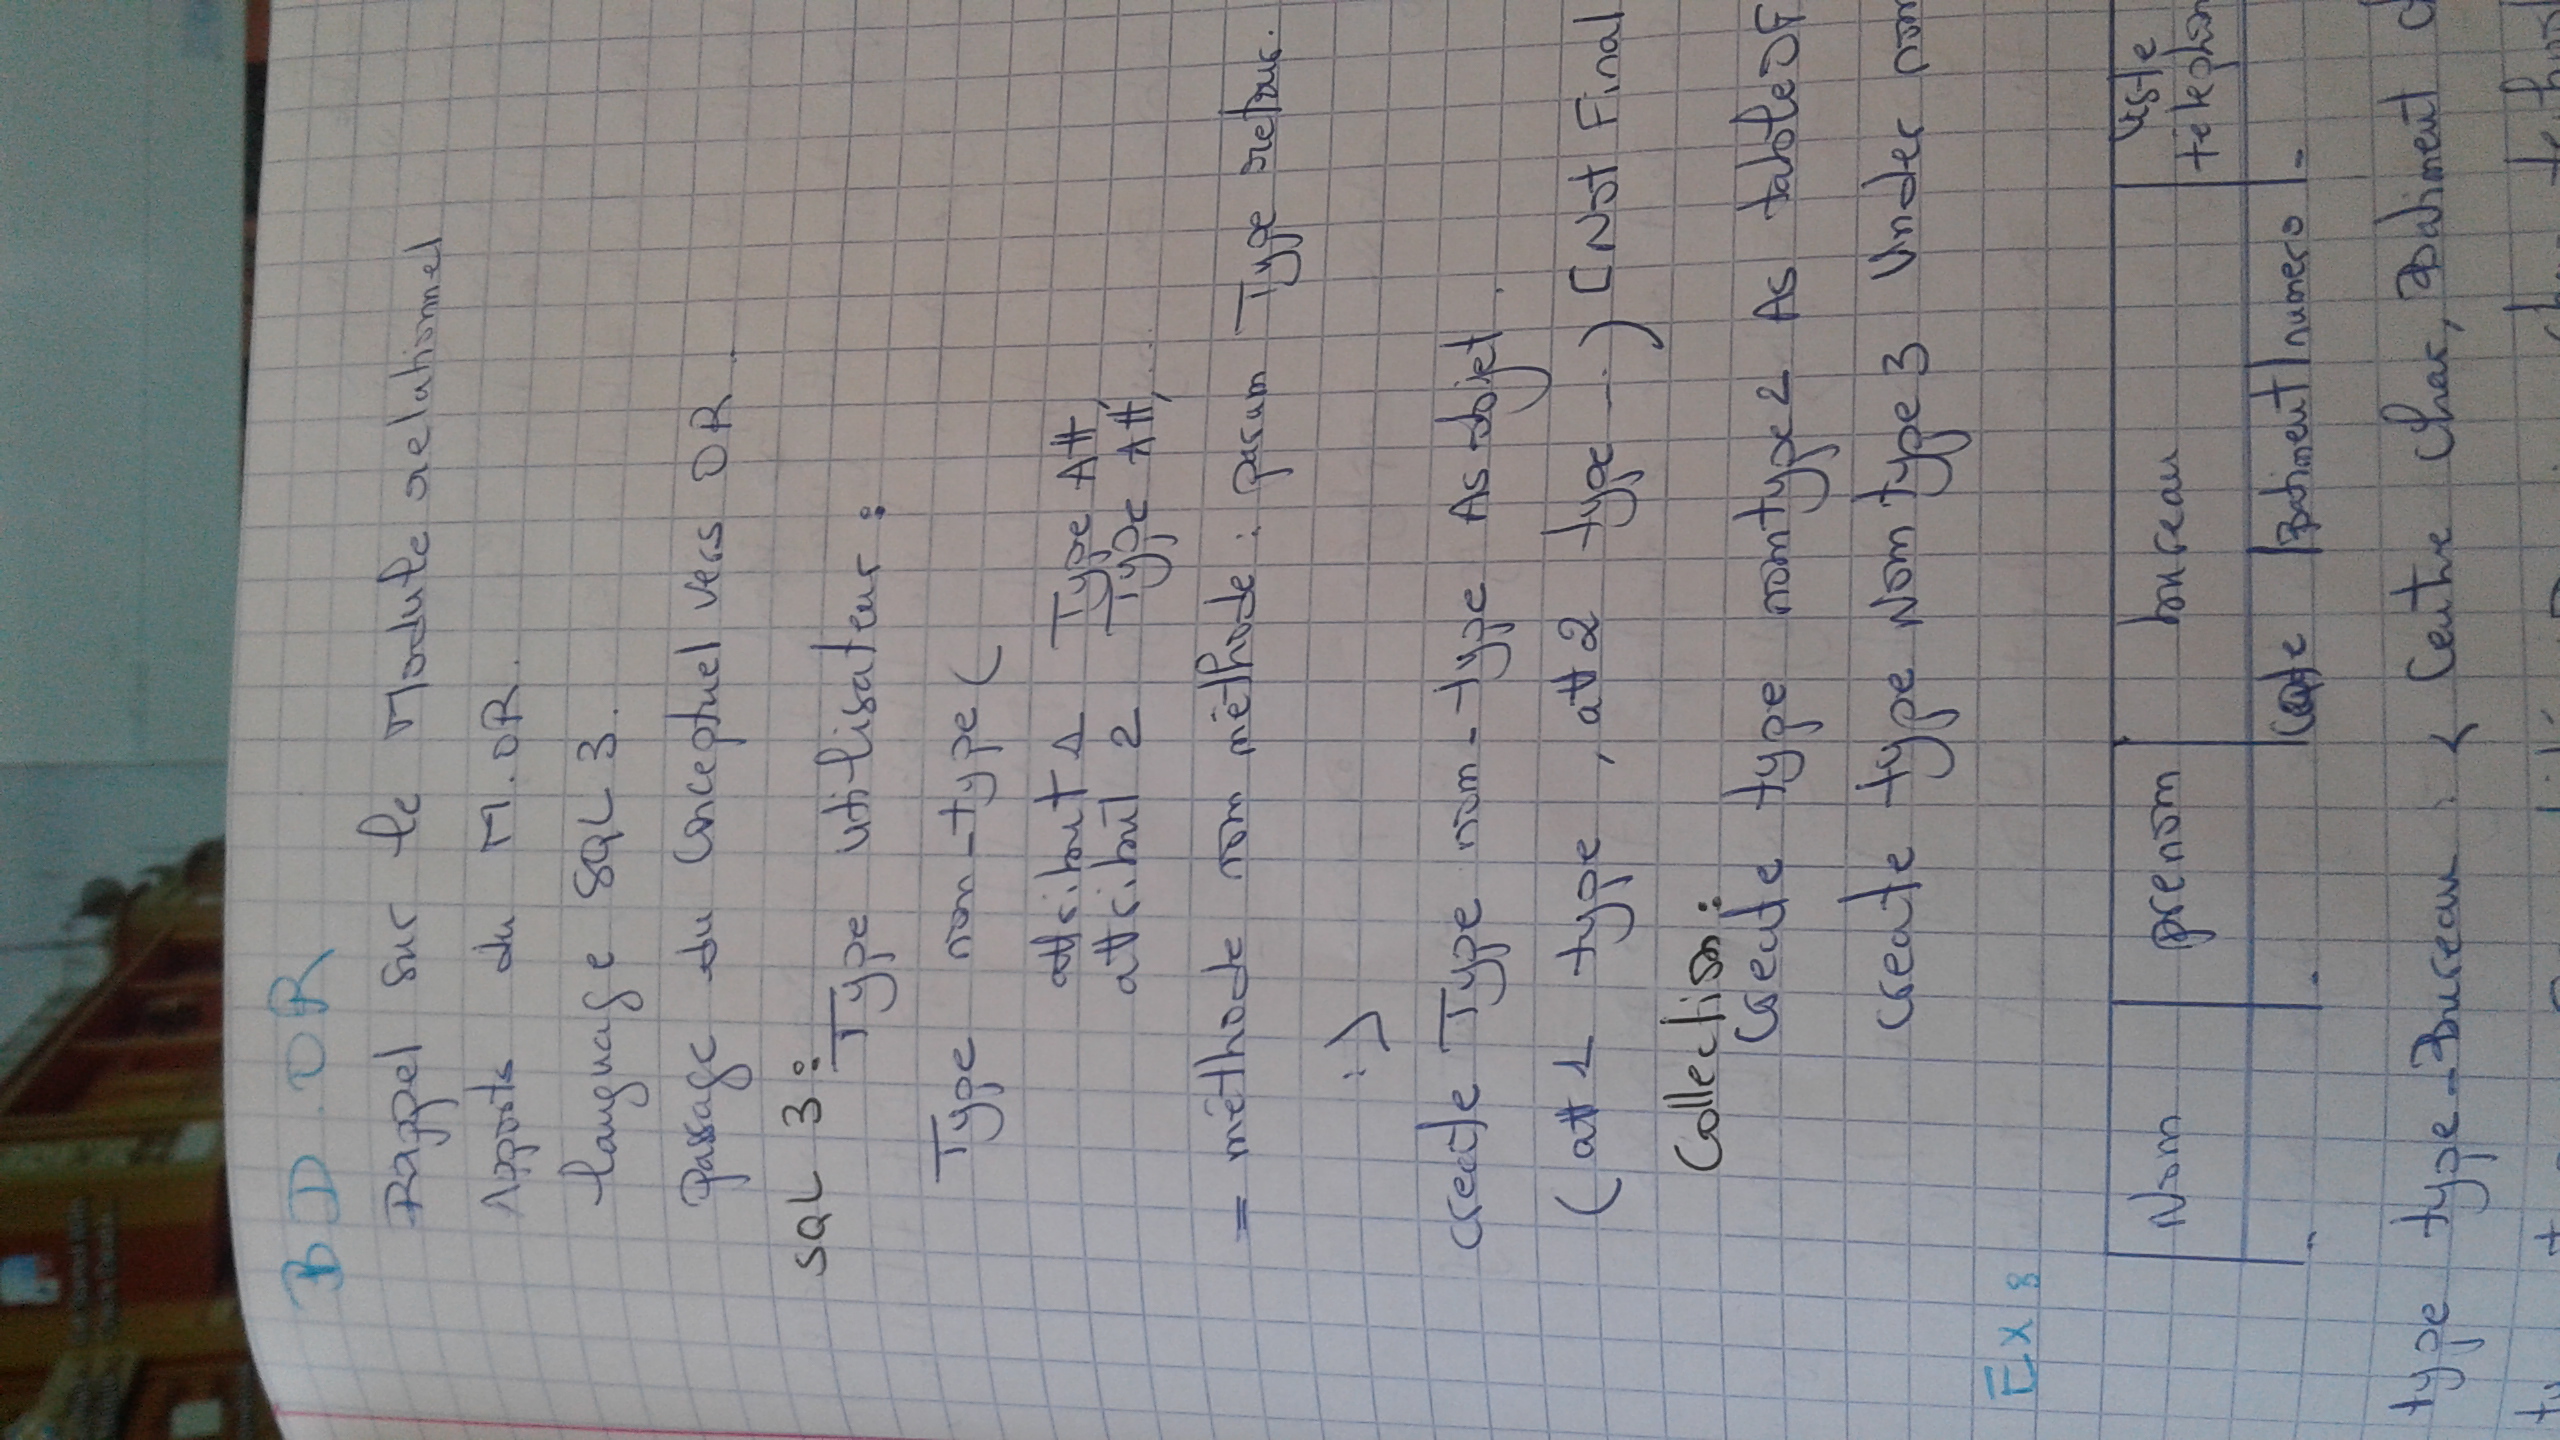 BD.OR
Rappel sur le Module relationnel
Apports du M.OR.
language SQL 3.
passage du Conceptuel vers OR.
SQL 3:
Type utilisateur:
Type nom-type(
attribut 1 Type Att,
attribut 2 Type Att, ...
= méthode nom méthode : param Type retour.
:)
create Type nom-type As objet.
(att1 type, att2 type ...) [Not Final
Collection:
Create type nomtype2 As table OF
create type Nomtype3 Under nom
Ex:
Nom prenom bureau liste
télephon
Batiment numero
type type-Bureau : < Centre char, Batiment